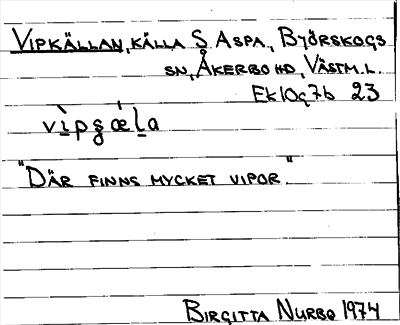 VIPKÄLLAN, KÄLLA S ASPA, BJÖRSKOGS
SN, ÅKERBO HD, VÄSTM. L.
EK 10g7b 23
vìpgǽla
"DÄR FINNS MYCKET VIPOR"
BIRGITTA NURBO 1974